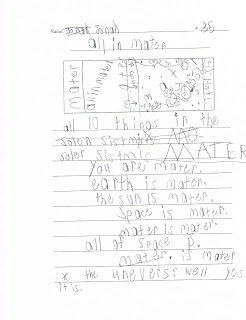 Name: Jonah
#35
all in mater
mater
all 10 things in the
soler sistm is
MATER
you are mater.
earth is mater.
the sun is mater.
Space is mater.
mater is mater.
all of seace p.
mater. is mater
* the unevers? well yes
it is.